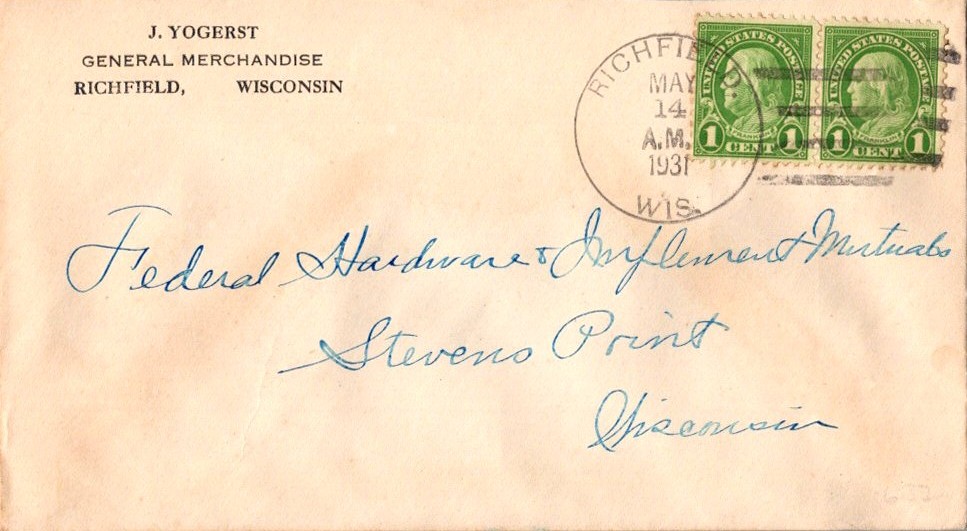 J. YOGERST
GENERAL MERCHANDISE
RICHFIELD, WISCONSIN
RICHFIELD.
MAY
14
A.M.
1931
WIS.
UNITED STATES POSTAGE
FRANKLIN
1 CENT 1
UNITED STATES POSTAGE
FRANKLIN
1 CENT 1
Federal Hardware & Implement Mutuals
Stevens Point
Wisconsin